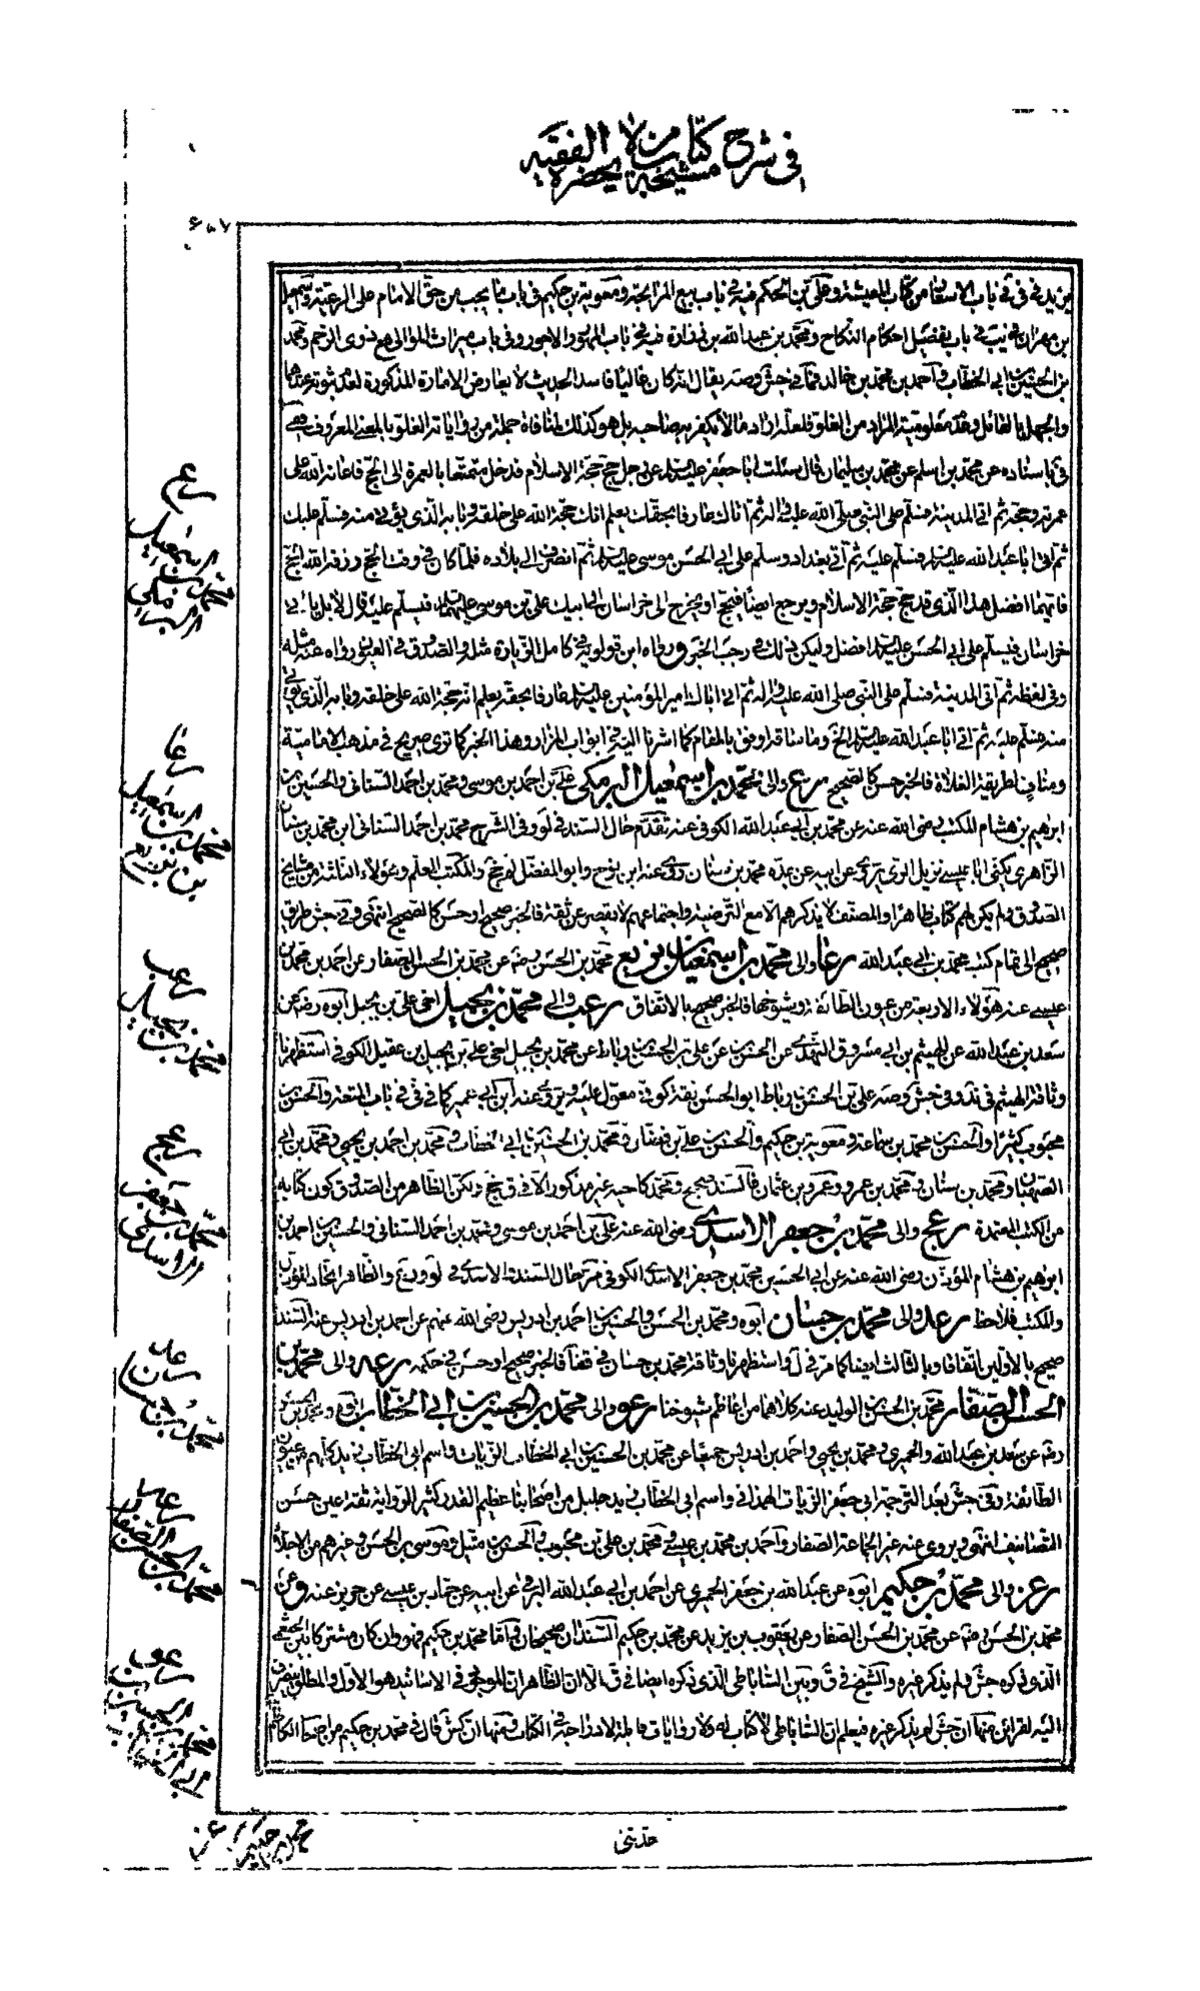 في شرح مشيخة كتاب من لا يحضره الفقيه
يزيد في في باب الاسعار من كتاب المعيشة وعلي بن الحكم فيه في باب بيع المرابحة ومعوية بن حكيم في باب ما يجب من حق الامام على الرعية واسمعيل
بن مهران في يب في باب تفصيل احكام النكاح ومحمد بن عبد الله بن زرارة فيه في باب المهور والاجور وفي باب ميراث الموالي مع ذوي الرحم ومحمد
بن الحسين بن ابي الخطاب واحمد بن محمد بن خالد فما في جش وصه يقال انه كان غاليا فاسد الحديث لا يعارض الامارة المذكورة لعدم ثبوته عندهما
والجهل بالقائل وعدم معلومية المراد من الغلو فلعله اراد ما لا يكفر به صاحبه بل هو كذلك لمنافاة جملة من رواياته الغلو بالمعنى المعروف ففي
في باسناده عن محمد بن اسلم عن محمد بن سليمان قال سئلت ابا جعفر عليه السلام عن رجل حج حجة الاسلام فدخل متمتعا بالعمرة الى الحج فاعانه الله على
عمرته وحجه ثم اتى المدينة فسلم على النبي صلى الله عليه واله ثم اتاك عارفا بحقك يعلم انك حجة الله على خلقه وبابه الذي يؤتى منه فسلم عليك
ثم اتى ابا عبد الله عليه السلام فسلم عليه ثم اتى بغداد وسلم على ابي الحسن موسى عليه السلام ثم انصرف الى بلاده فلما كان في وقت الحج رزقه الله الحج
فايهما افضل هذا الذي قد حج حجة الاسلام ويرجع ايضا فيحج او يخرج الى خراسان الى ابيك علي بن موسى عليهما السلام فيسلم عليه قال لا بل ياتي
خراسان فيسلم على ابي الحسن عليه السلام افضل وليكن ذلك في رجب الخبر ورواه ابن قولويه في كامل الزيارة مثله والصدوق في العيون رواه عنه مثله
وفي لفظه ثم اتى المدينة فسلم على النبي صلى الله عليه واله ثم اتى اباك امير المؤمنين عليه السلام عارفا بحقه يعلم انه حجة الله على خلقه وبابه الذي يؤتى
منه فسلم عليه ثم اتى ابا عبد الله عليه السلام الخ وما سافه اوفق بالمقام كما اشرنا اليه في ابواب المزار وهذا الخبر كما ترى صريح في مذهب الامامية
ومناف لطريقة الغلاة فالخبر حسن كالصحيح رع والى محمد بن اسمعيل البرمكي علي بن احمد بن موسى ومحمد بن احمد السناني والحسين بن
ابرهيم بن هشام المكتب رضي الله عنه عن محمد بن ابي عبد الله الكوفي عنه تقدم حال السند في لو وفي الشرح محمد بن احمد السناني ابن محمد بن سنان
الزاهري يكنى ابا عيسى نزيل الري يروي عن ابيه عن جده محمد بن سنان روى عنه ابن نوح وابو المفضل لم جخ والمكتب المعلم وهؤلاء الثلثة من مشايخ
الصدوق ولم يكن لهم كتاب ظاهرا والمصنف لا يذكرهم الا مع الترضية واجتماعهم لا يقصر عن ثقة فالخبر صحيح او حسن كالصحيح انتهى وفي جش طريق
صحيح الى تمام كتب محمد بن ابي عبد الله رعا والى محمد بن اسمعيل بن بزيع محمد بن الحسن رضه عن محمد بن الحسن الصفار عن احمد بن محمد بن
عيسى عنه هؤلاء الاربعة من عيون الطائفة وشيوخها فالخبر صحيح بالاتفاق رعب والى محمد بن بجيل اخي علي بن بجيل ابوه رضه عن
سعد بن عبد الله عن الهيثم بن ابي مسروق النهدي عن الحسن بن علي بن الحسن بن رباط عن محمد بن بجيل اخي علي بن بجيل بن عقيل الكوفي استظهرنا
وثاقة الهيثم في ند وفي جش وصه علي بن الحسن بن رباط ابو الحسن ثقة كوفي معول عليه ويروي عنه ابن ابي عمير كما في في في باب المتعة والحسن بن
محبوب كثيرا والحسن بن محمد بن سماعة ومعوية بن حكيم والحسن بن علي بن فضال ومحمد بن الحسين بن ابي الخطاب ومحمد بن احمد بن يحيى ومحمد بن ابي
الصهبان ومحمد بن سنان ومحمد بن عمرو وعمرو بن عثمان فالسند صحيح ومحمد كاخيه غير مذكور الا في ق جخ ولكن الظاهر من الصدوق كون كتابه
من الكتب المعتمدة رعج والى محمد بن جعفر الاسدي رضي الله عنه علي بن احمد بن موسى ومحمد بن احمد السناني والحسين بن احمد بن
ابرهيم بن هشام المؤدب رضي الله عنه عن ابي الحسين محمد بن جعفر الاسدي الكوفي مر حال السند والاسدي في لو والظاهر اتحاد المؤدب
والمكتب فلاحظ رعد والى محمد بن حسان ابوه ومحمد بن الحسن والحسين بن احمد بن ادريس رضي الله عنهم عن احمد بن ادريس عنه السند
صحيح بالاولين اتفاقا وبالثالث ايضا كما مر في واستظهرنا وثاقة محمد بن حسان في فالخبر صحيح او حسن في حكمه رعه والى محمد بن
الحسن الصفار محمد بن الحسن بن الوليد عنه كلاهما من اعاظم شيوخنا رعو والى محمد بن الحسين بن ابي الخطاب ابوه ومحمد بن الحسن
رضه عن سعد بن عبد الله والحميري ومحمد بن يحيى واحمد بن ادريس جميعا عن محمد بن الحسين بن ابي الخطاب الزيات واسم ابي الخطاب زيد كلهم من عيون
الطائفة وفي جش بعد الترجمة ابي جعفر الزيات الهمداني واسم ابي الخطاب زيد جليل من اصحابنا عظيم القدر كثير الرواية ثقة عين حسن
التصانيف انتهى ويروي عنه غير الجماعة الصفار واحمد بن محمد بن عيسى ومحمد بن علي بن محبوب والحسن بن متيل وموسى بن الحسن وغيرهم من الاجلاء
رعز والى محمد بن حكيم ابوه عن عبد الله بن جعفر الحميري عن احمد بن ابي عبد الله البرقي عن ابيه عن حماد بن عيسى عن حريز عنه وعن
محمد بن الحسن رضه عن محمد بن الحسن الصفار عن يعقوب بن يزيد عن محمد بن حكيم السندان صحيحان واما محمد بن حكيم فهو وان كان مشتركا بين الخثعمي
الذي ذكره جش ولم يذكر غيره والشيخ في ق وبين الساباطي الذي ذكره ايضا في ق الا ان الظاهر ان الموجود في الاسانيد هو الاول والمطلق ينصرف
اليه لقرائن منها ان جش لم يذكر غيره فيعلم ان الساباطي لا كتاب له ولا روايات ومنها ان كش قال في محمد بن حكيم من اصحاب الكاظم
حدثني
رع
محمد بن اسمعيل
البرمكي
رعا
محمد بن اسمعيل
بن بزيع
رعب
محمد بن بجيل
رعج
محمد بن جعفر
الاسدي
رعد
محمد بن حسان
رعه
محمد بن الحسن الصفار
رعو
محمد بن الحسين بن
ابي الخطاب
رعز
محمد بن حكيم